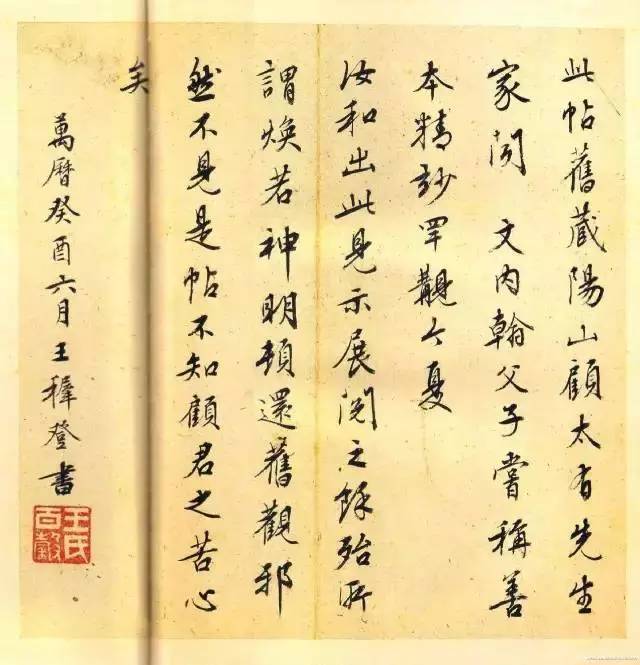 此帖舊蔵陽山顧太有先生
家閱　文内翰父子嘗稱善
本精妙罕覯今夏
汝和出此見示展閱之餘殆所
謂焕若神明頓還舊觀邪
然不見是帖不知顧君之苦心
矣
萬曆癸酉六月王穉登書
王氏
百穀